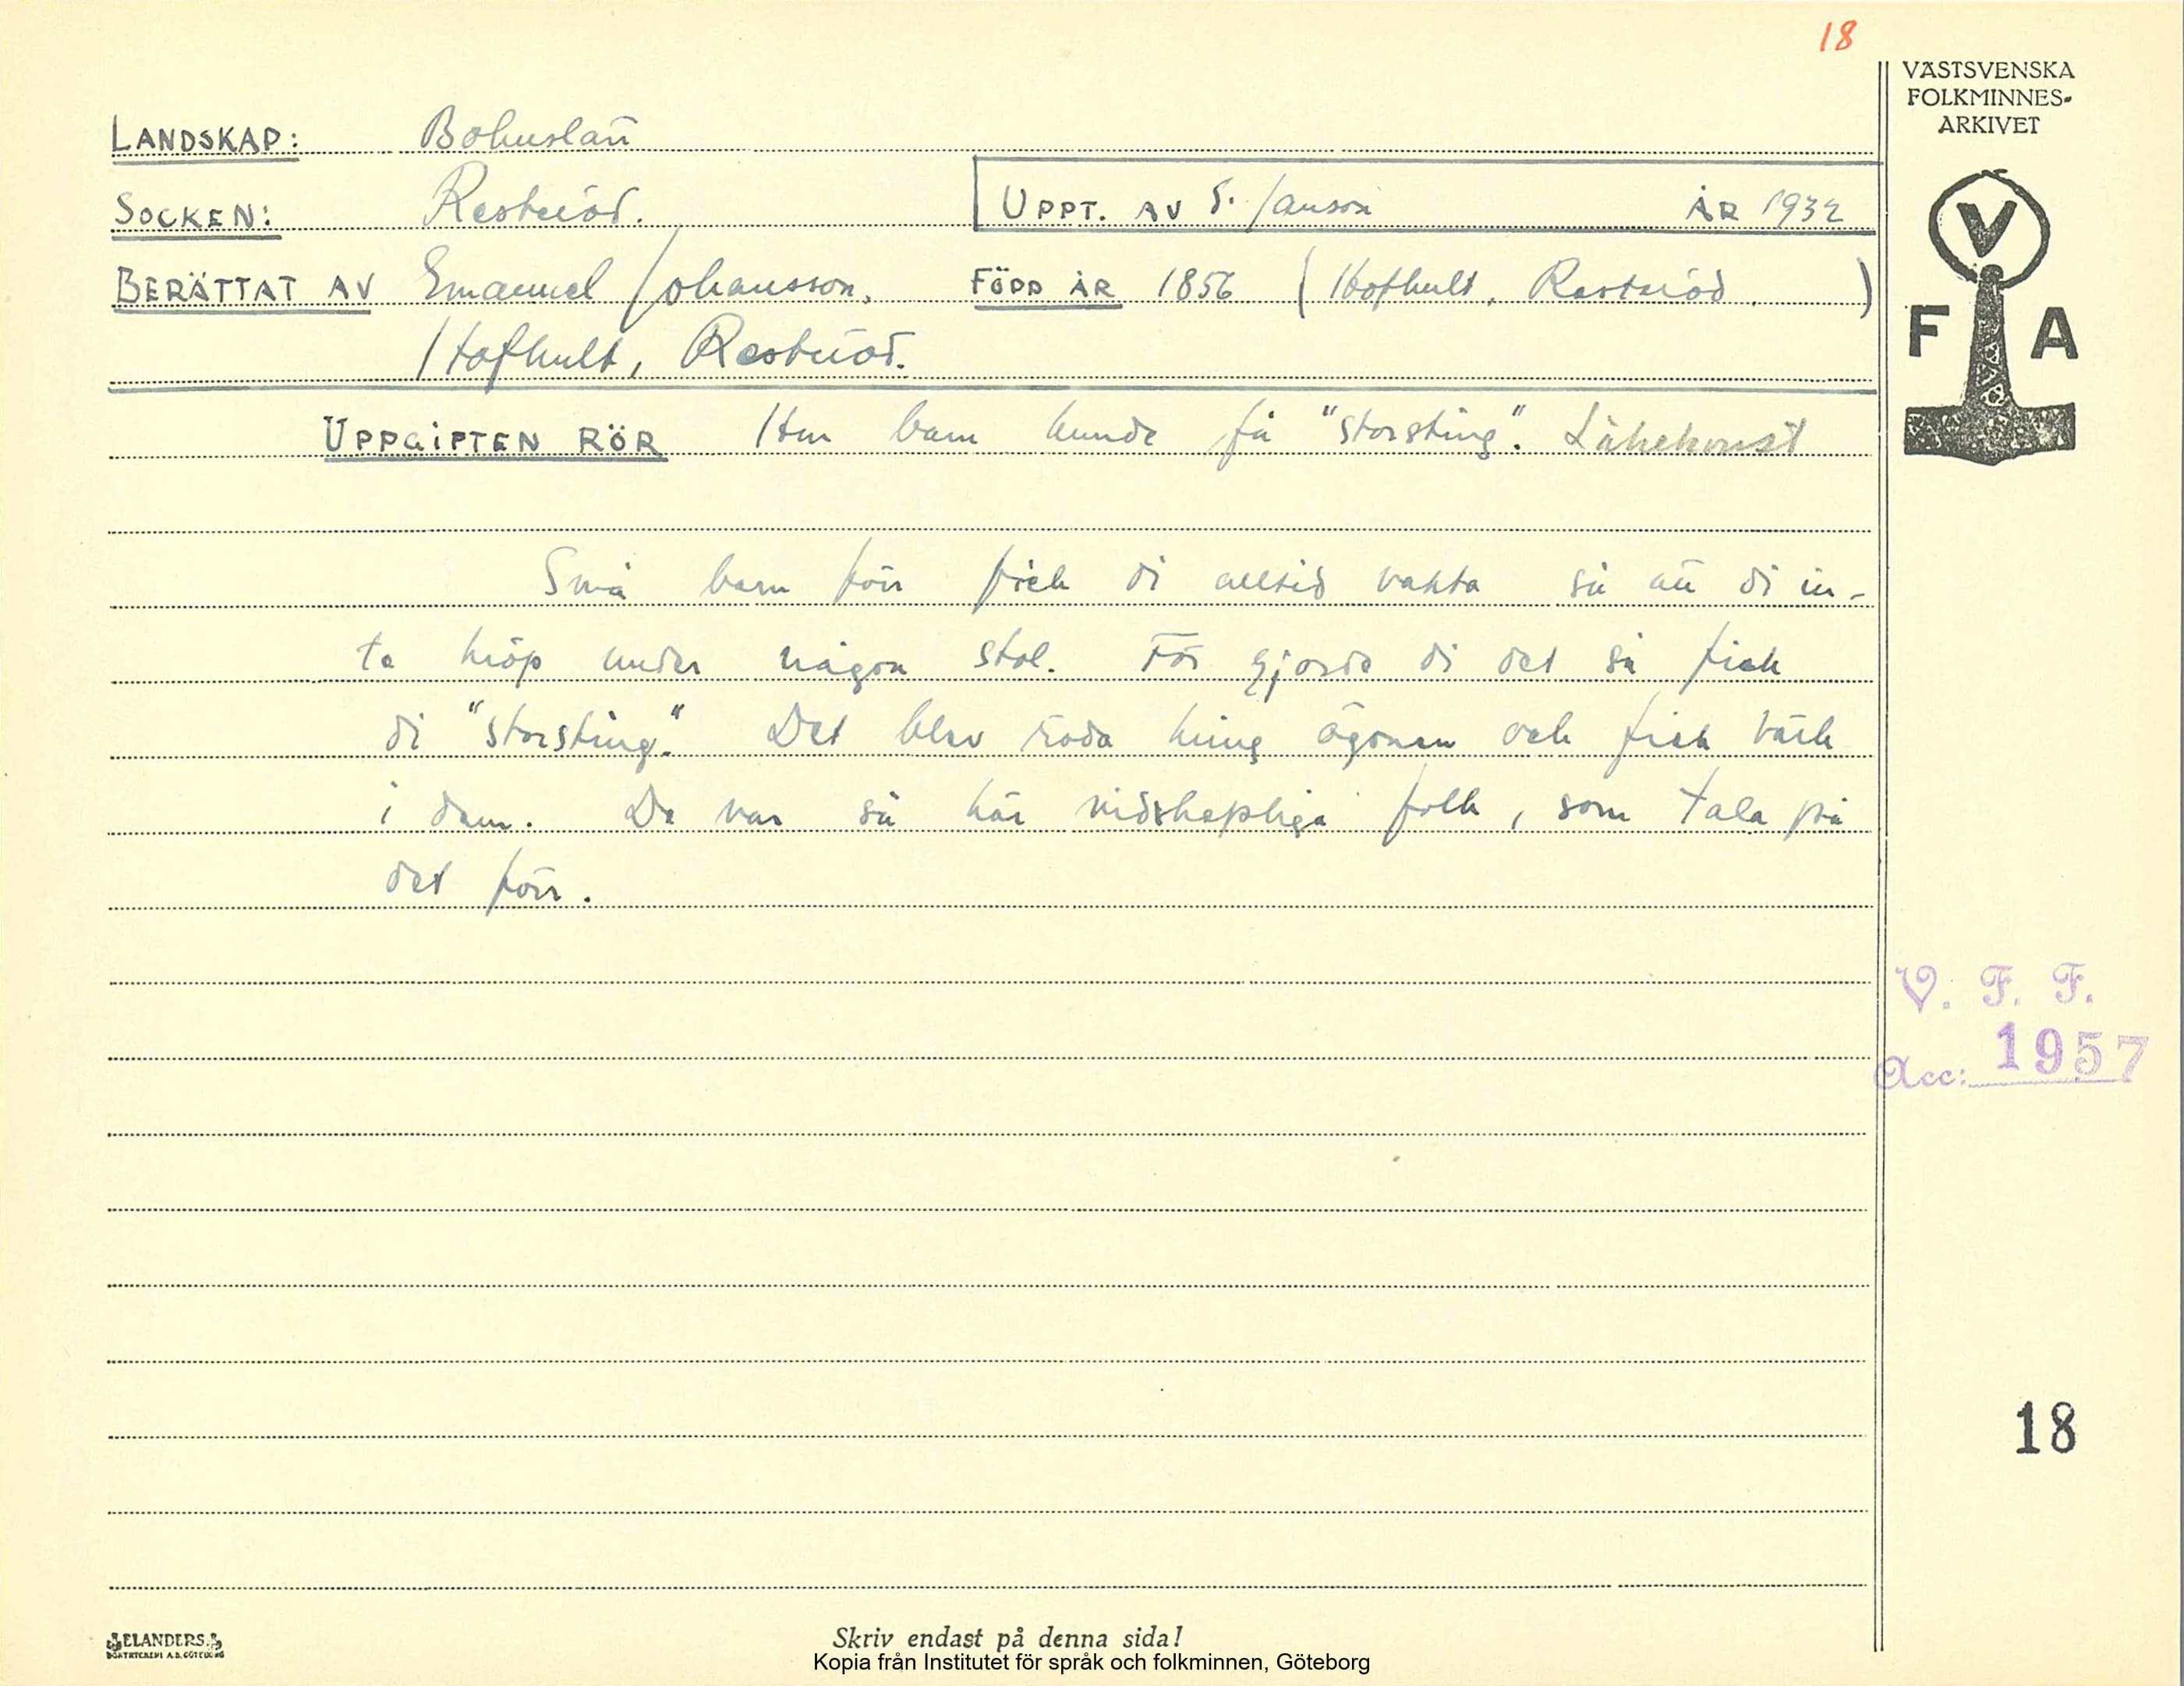 18
VÄSTSVENSKA
FOLKMINNES-
ARKIVET
LANDSKAP: Bohuslän
SOCKEN: Resteröd. UPPT. AV S. Janson ÅR 1932
BERÄTTAT AV Emanuel Johansson, FÖDD ÅR 1856 (Hofhult, Resteröd.)
Hofhult, Resteröd.
V
F A
UPPGIFTEN RÖR Hur barn kunde få "storsting". Läkekonst
Små barn förr fick di alltid vakta så att di in-
te kröp under någon stol. För gjorde di det så fick
di "storsting." Det blev röda kring ögonen och fick värk
i dem. De var så här vidskepliga folk, som tala på
det förr.
V. F. F.
Acc: 1957
18
ELANDERS
BOKTRYCKERI A.B. GÖTEBORG
Skriv endast på denna sida!
Kopia från Institutet för språk och folkminnen, Göteborg